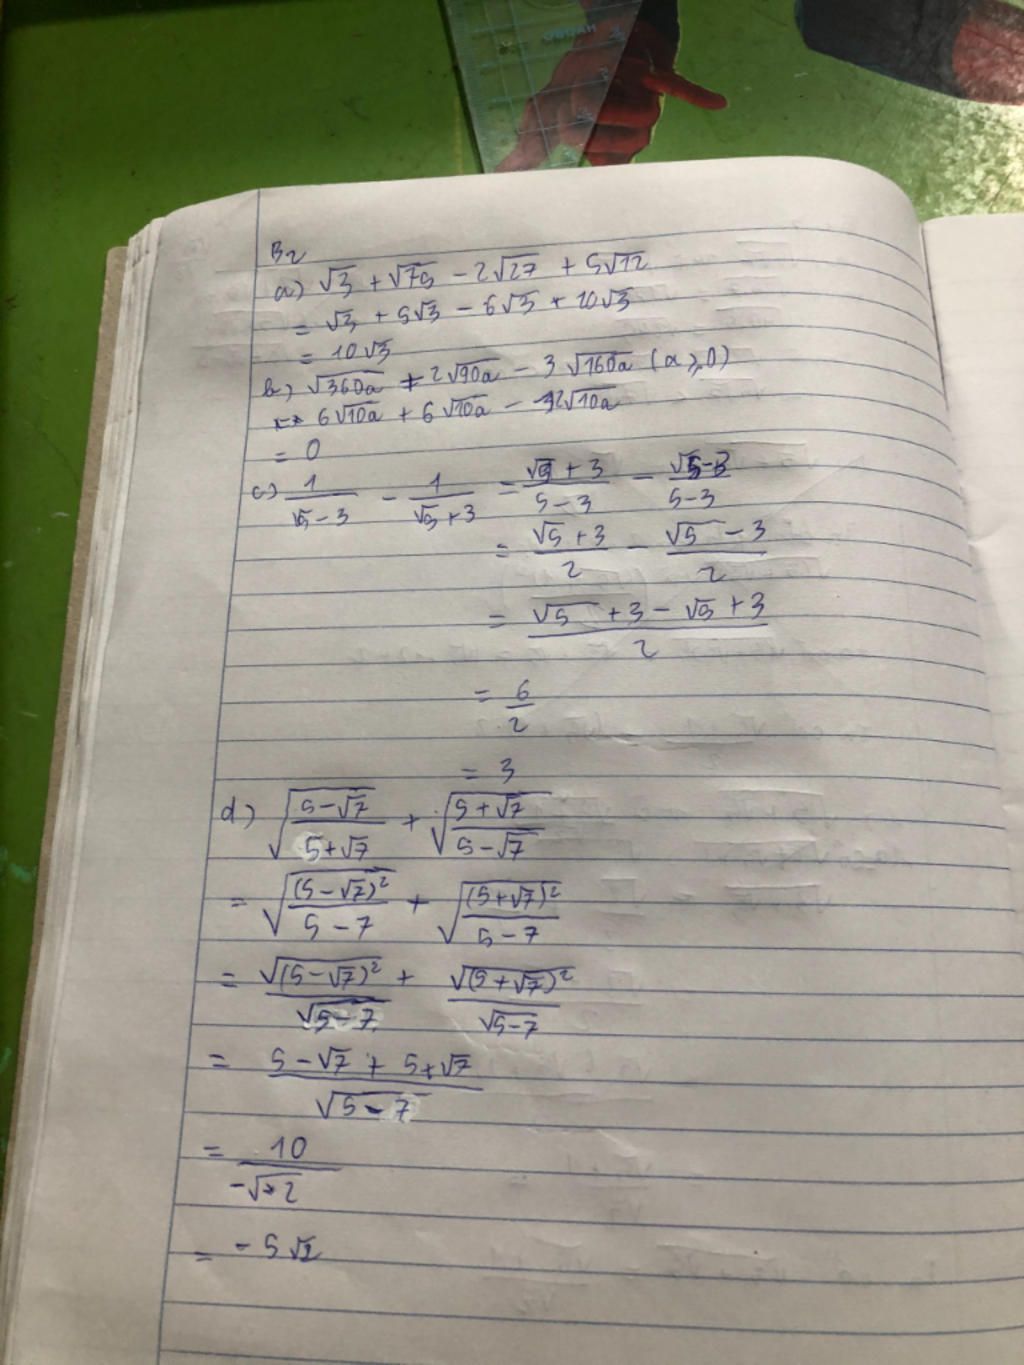 B2
a) √3 + √75 - 2√27 + 5√12
= √3 + 5√3 - 6√3 + 10√3
= 10√3
b) √360a + 2√90a - 3√160a (a ≥ 0)
= 6√10a + 6√10a - 12√10a
= 0
c) 1/(√5 - 3) - 1/(√5 + 3) = (√5 + 3)/(5 - 3) - (√5 - 3)/(5 - 3)
= (√5 + 3)/2 - (√5 - 3)/2
= (√5 + 3 - √5 + 3)/2
= 6/2
= 3
d) √((5 - √7)/(5 + √7)) + √((5 + √7)/(5 - √7))
= √((5 - √7)²/(5 - 7)) + √((5 + √7)²/(5 - 7))
= √(5 - √7)²/√(5 - 7) + √(5 + √7)²/√(5 - 7)
= (5 - √7 + 5 + √7)/√(5 - 7)
= 10/(-√2)
= -5√2